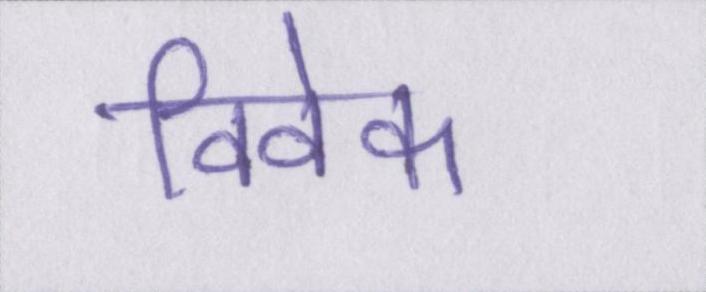 विवेक